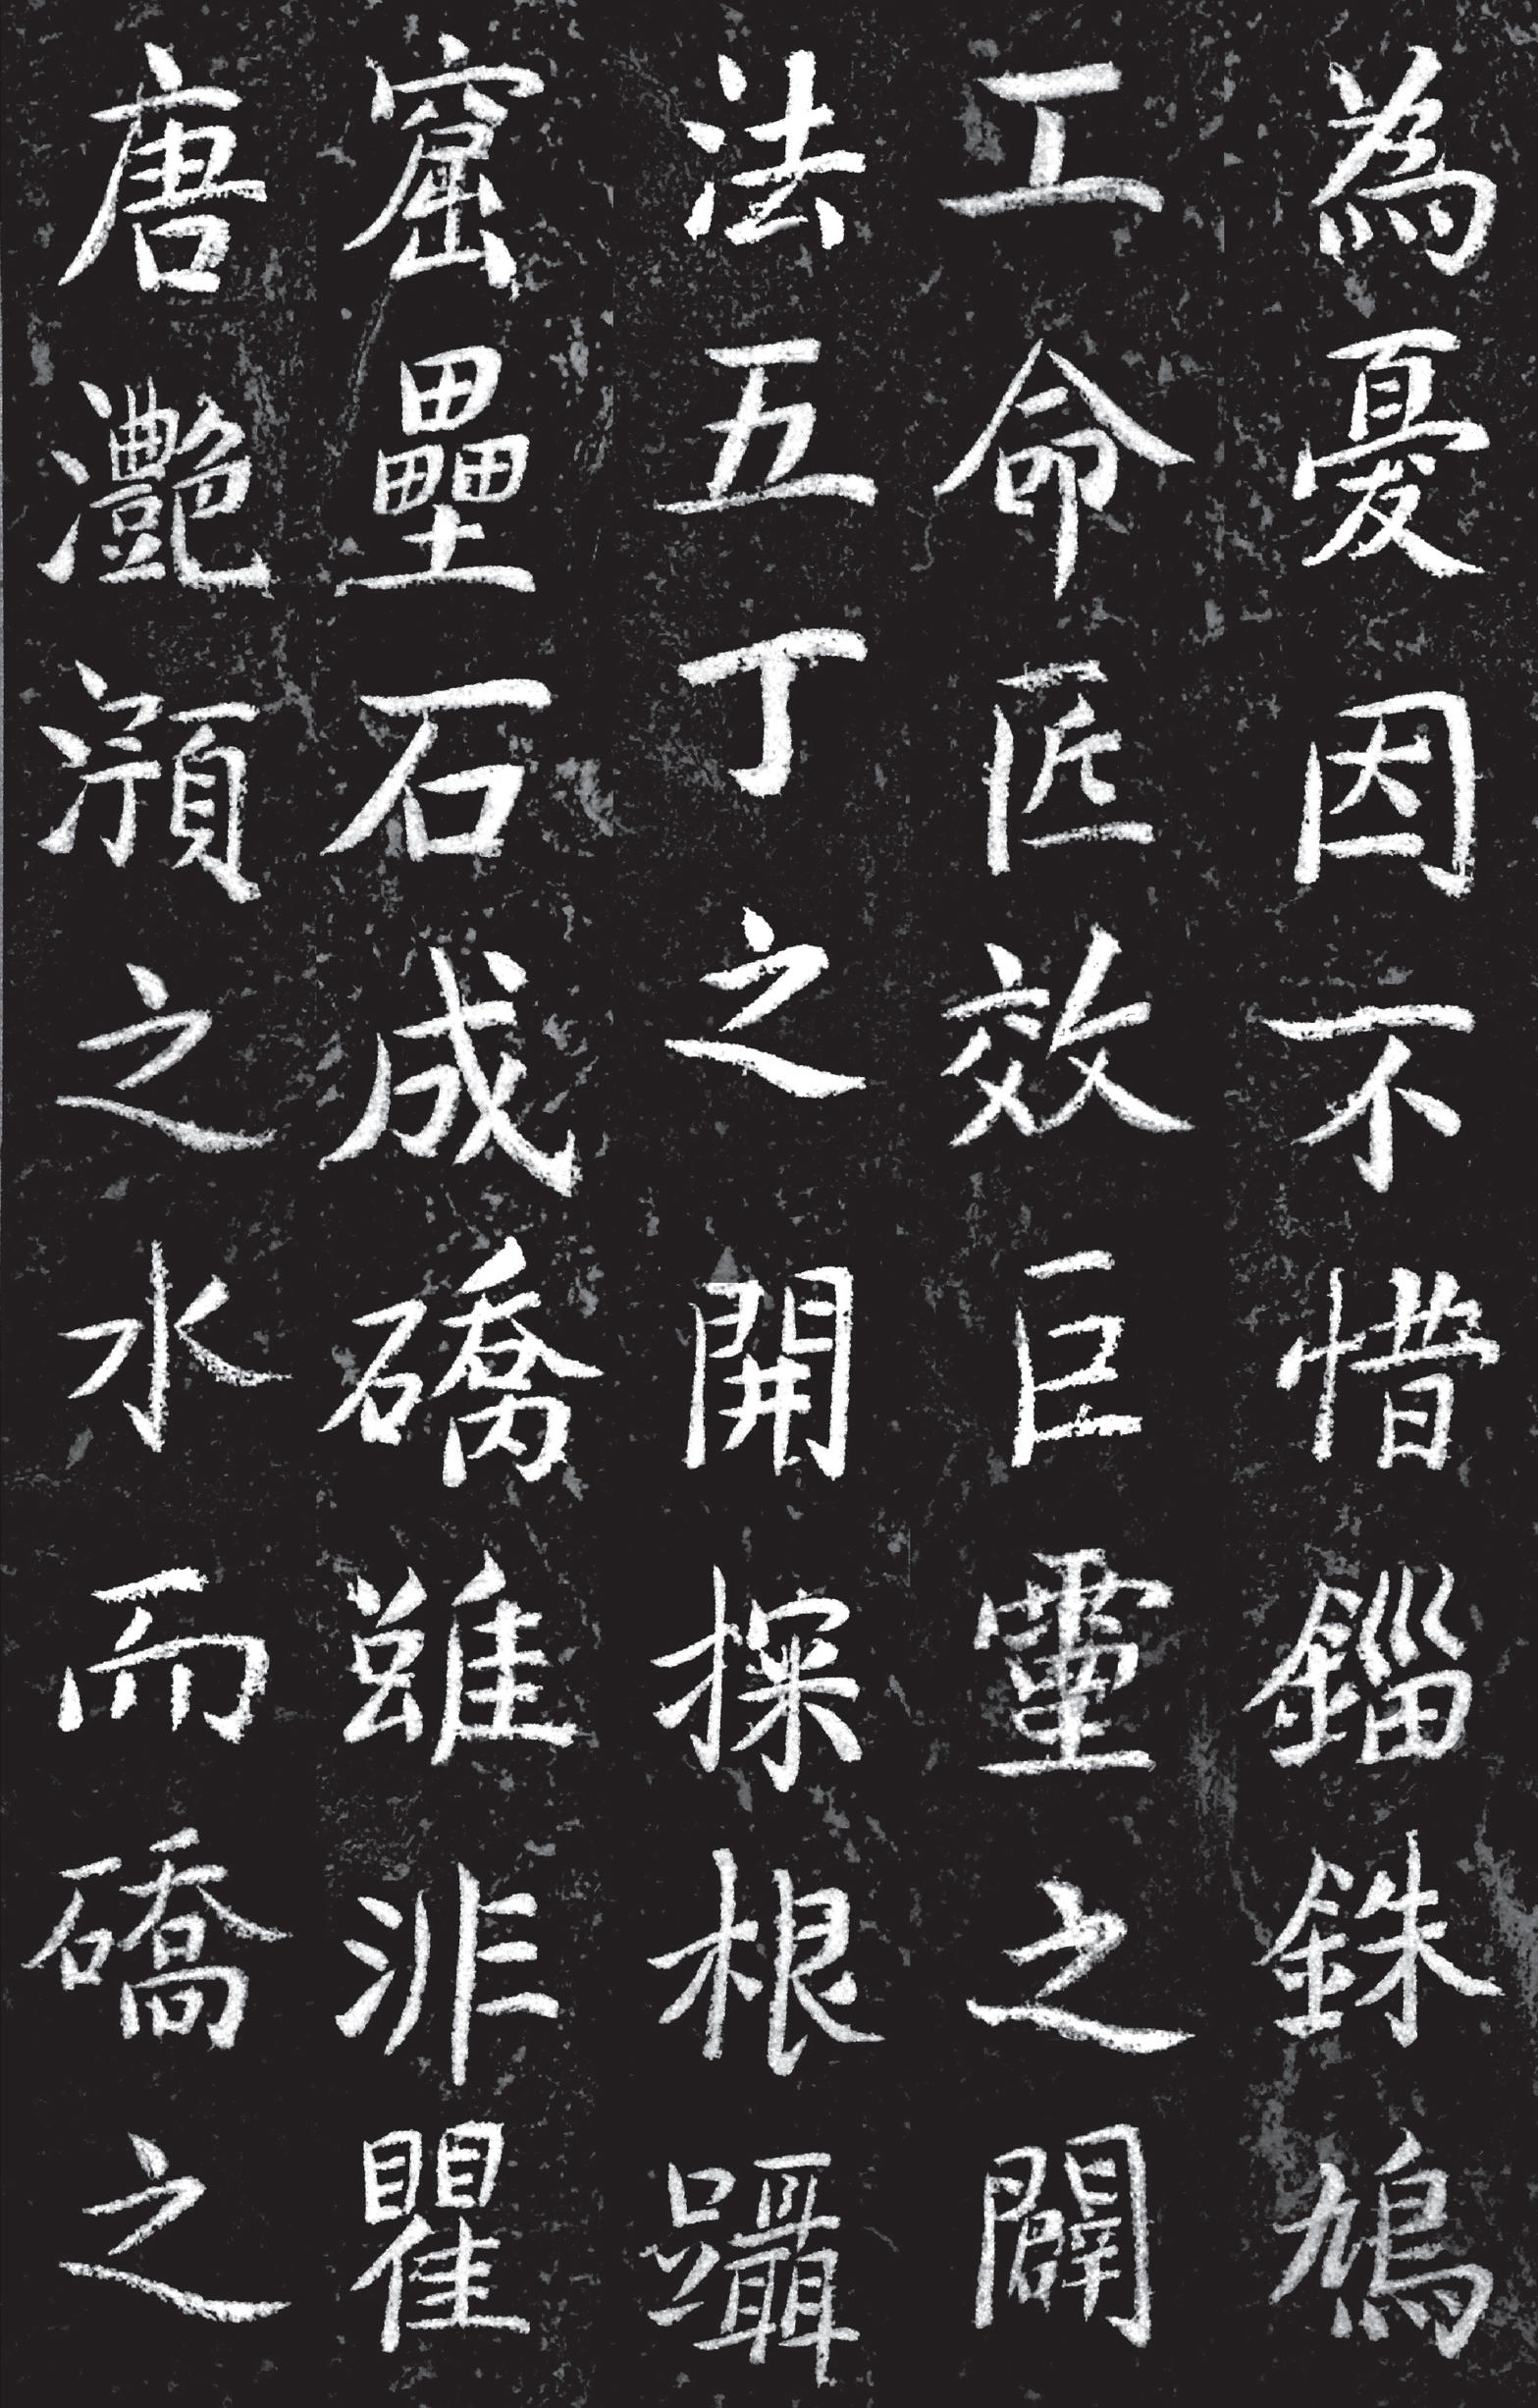 為憂因不惜錙銖鳩
工命匠效巨靈之闢
法五丁之開探根躡
窟壘石成礄雖非瞿
唐灩澦之水而礄之